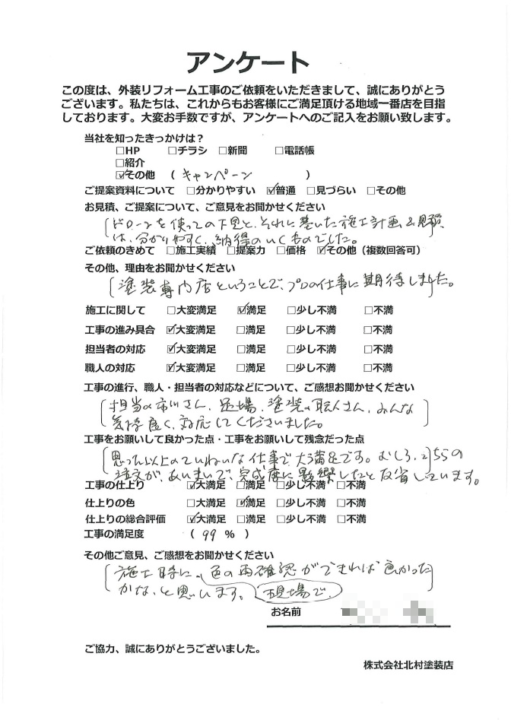 アンケート
この度は、外装リフォーム工事のご依頼をいただきまして、誠にありがとう
ございます。私たちは、これからもお客様にご満足頂ける地域一番店を目指
しております。大変お手数ですが、アンケートへのご記入をお願い致します。
当社を知ったきっかけは？
□HP □チラシ □新聞 □電話帳
□紹介
☑その他 （ キャンペーン ）
ご提案資料について □分かりやすい ☑普通 □見づらい □その他
お見積、ご提案について、ご意見をお聞かせください
ドローンを使っての下見と、それに基いた施工計画&見積
は、分かりやすく、納得のいくものでした。
ご依頼のきめて □施工実績 □提案力 □価格 ☑その他（複数回答可）
その他、理由をお聞かせください
塗装専門店ということで、プロの仕事に期待しました。
施工に関して □大変満足 ☑満足 □少し不満 □不満
工事の進み具合 ☑大変満足 □満足 □少し不満 □不満
担当者の対応 ☑大変満足 □満足 □少し不満 □不満
職人の対応 ☑大変満足 □満足 □少し不満 □不満
工事の進行、職人・担当者の対応などについて、ご感想お聞かせください
担当の市川さん、足場、塗装の職人さん、みんな
気持良く対応してくださいました。
工事をお願いして良かった点・工事をお願いして残念だった点
思った以上のていねいな仕事で大満足です。むしろ、こちらの
注文が、あいまいで、完成度に影響したと反省しています。
工事の仕上り ☑大満足 □満足 □少し不満 □不満
仕上りの色 □大満足 ☑満足 □少し不満 □不満
仕上りの総合評価 ☑大満足 □満足 □少し不満 □不満
工事の満足度 （ 99 % ）
その他ご意見、ご感想をお聞かせください
施工時に、色の再確認ができれば良かった
かな、と思います。現場で
お名前
ご協力、誠にありがとうございました。
株式会社北村塗装店